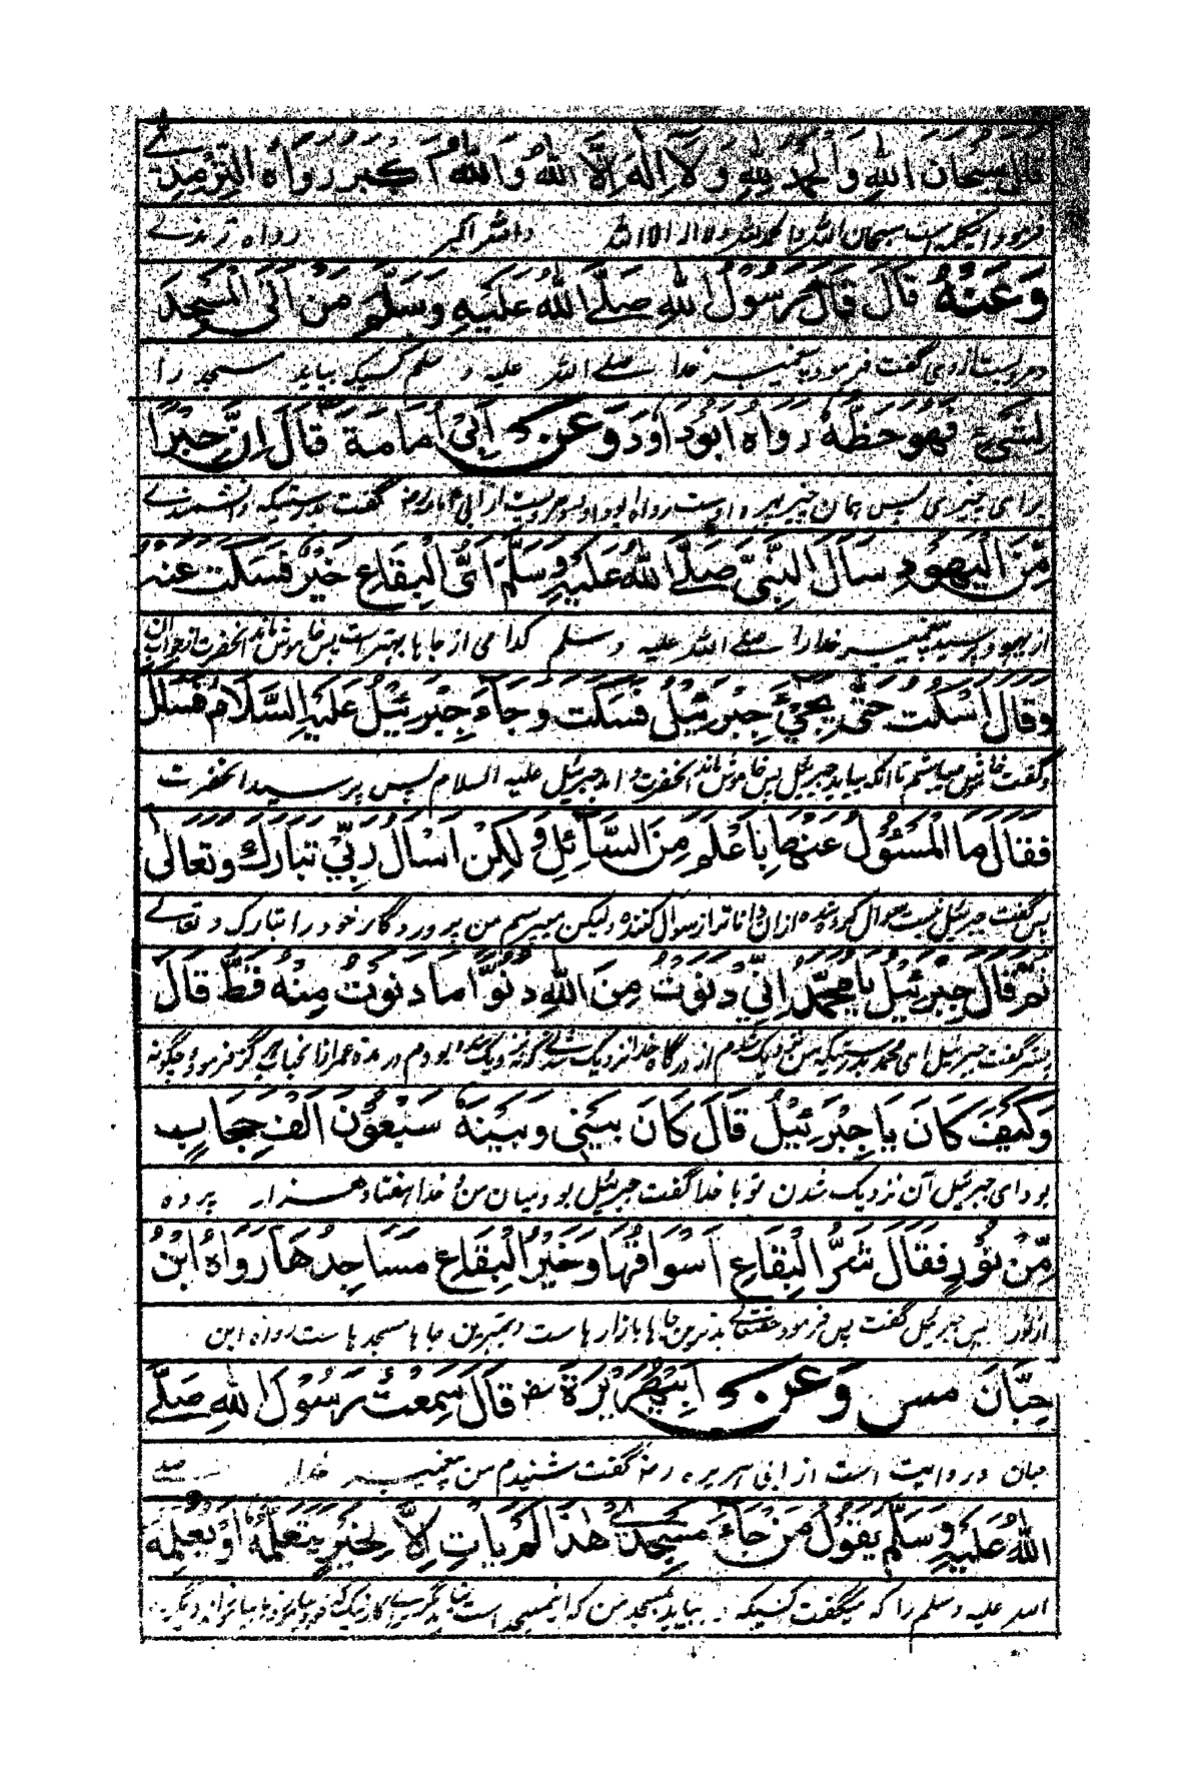 قال سبحان الله والحمد لله ولا اله الا الله والله اكبر رواه الترمذي
والله اكبر رواه ترمذے
وَعَنْهُ قال قال رسول الله صلے الله عليه وسلم من اتى المسجد
گفت فرمود پیغمبر خدا صلے اللہ علیہ و سلم کسیکہ بیاید مسجد را
لشئ فهو حظه رواه ابوداود وعن ابي امامة قال ان حبرا
برای چیزی پس ہمان چیز بہرہ اوست رواہ ابوداود و مرویست از ابی امامہ رض گفت بدرستیکہ دانشمندے
من اليهود سال النبي صلے الله عليه وسلم اي البقاع خير فسكت عنه
از یہود پرسید پیغمبر خدا را صلے اللہ علیہ و سلم کدامی از جاہا بہتر است پس خاموش ماند آنحضرت از جواب آن
وقال اسكت حتى يجئ جبرئيل فسكت وجاء جبرئيل عليه السلام فسال
و گفت خاموش میباشم تا آنکہ بیاید جبرئیل پس خاموش ماند آنحضرت و آمد جبرئیل علیہ السلام پس پرسید آنحضرت
فقال ما المسئول عنها باعلم من السائل ولكن اسال ربي تبارك وتعالى
پس گفت جبرئیل نیست سوال کردہ شدہ ازان دانا تر از سوال کنندہ ولیکن میپرسم من پروردگار خود را تبارک و تعالے
ثم قال جبرئيل يا محمد اني دنوت من الله دنوا ما دنوت منه قط قال
گفت جبرئیل ای محمد بدرستیکہ من نزدیک شدم از درگاہ خدا نزدیک شدنے
وكيف كان يا جبرئيل قال كان بيني وبينه سبعون الف حجاب
بود ای جبرئیل آن نزدیک شدن تو با خدا گفت جبرئیل بود میان من و خدا ہفتاد ہزار پردہ
من نور فقال شر البقاع اسواقها وخير البقاع مساجدها رواه ابن
از نور پس جبرئیل گفت پس فرمود حقتعالے بدترین جاہا بازارہاست و بہترین جاہا مسجدہاست رواہ ابن
حبان مس وعن ابي هريرة رض قال سمعت رسول الله صلے
حبان و روایت است از ابی ہریرہ رض گفت شنیدم من پیغمبر خدا
الله عليه وسلم يقول من جاء مسجدے هذا لم يات الا لخير يتعلمه او يعلمه
اللہ علیہ وسلم را کہ میگفت کسیکہ بیاید بمسجد من کہ این مسجد است